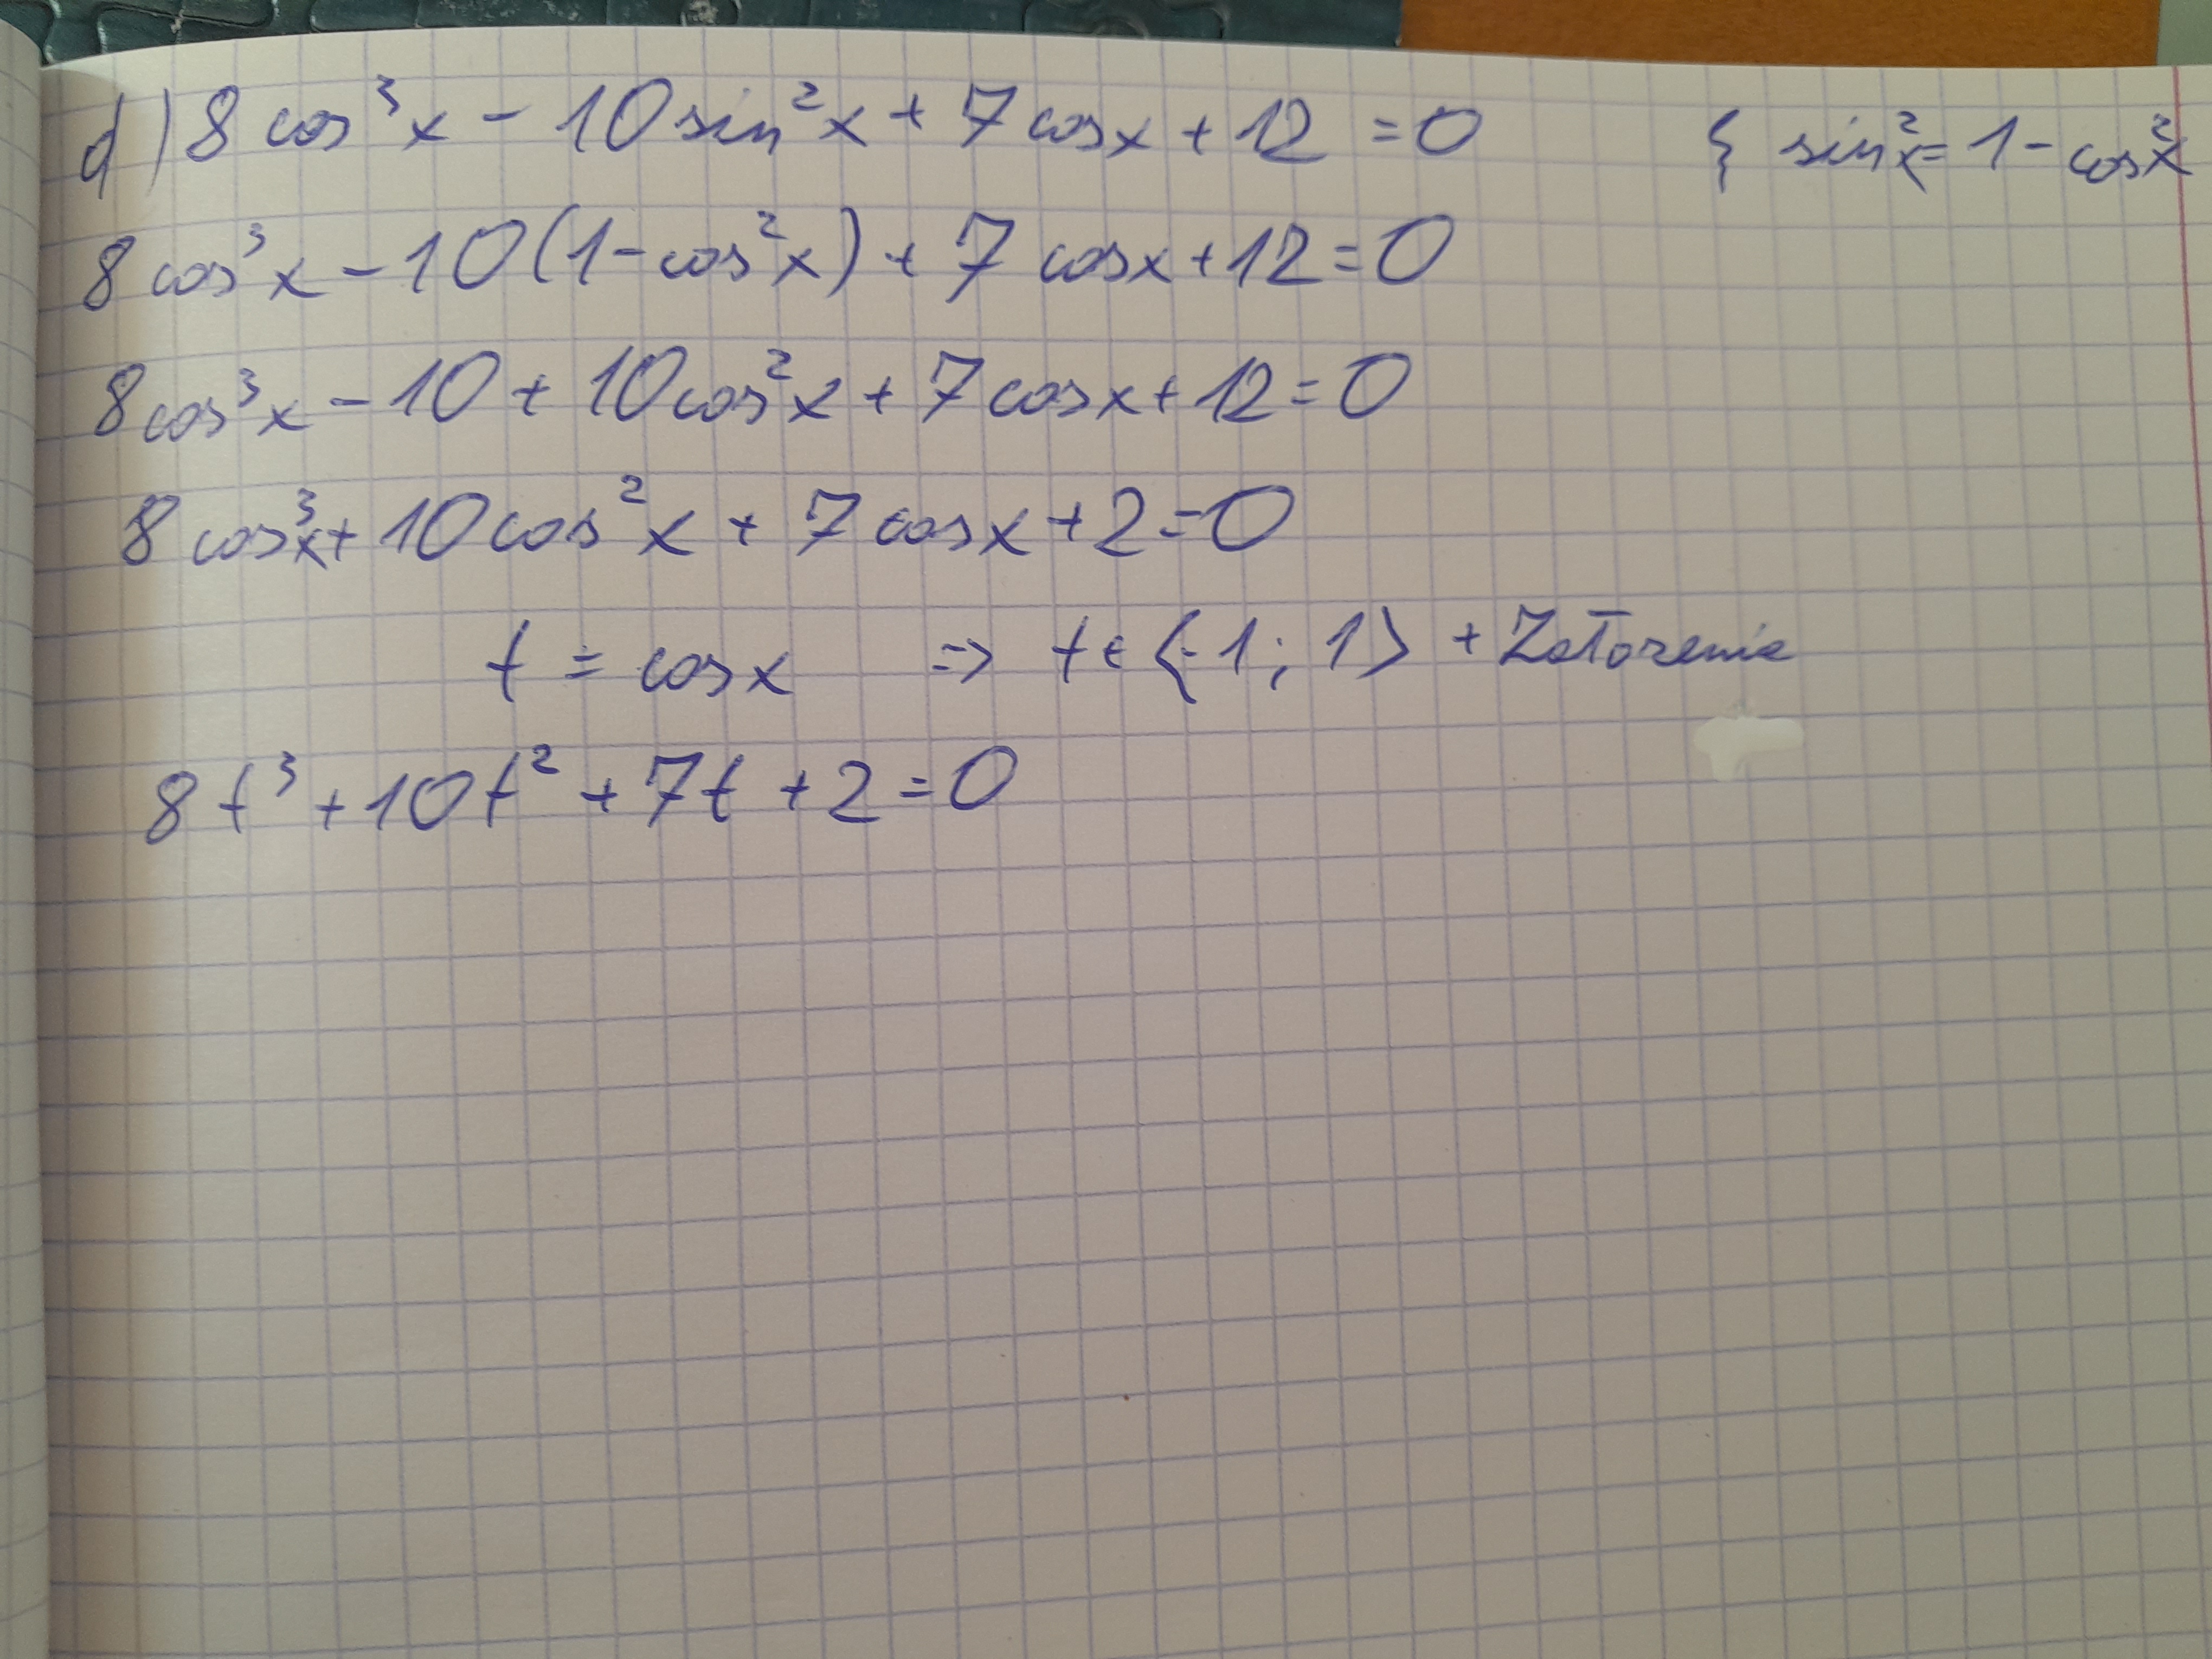 d) 8 cos³x - 10 sin²x + 7 cosx + 12 = 0 { sin²x = 1 - cos²x
8 cos³x - 10(1 - cos²x) + 7 cosx + 12 = 0
8cos³x - 10 + 10cos²x + 7cosx + 12 = 0
8 cos³x + 10cos²x + 7 cosx + 2 = 0
t = cosx => t ∈ <-1; 1> + Założenia
8t³ + 10t² + 7t + 2 = 0